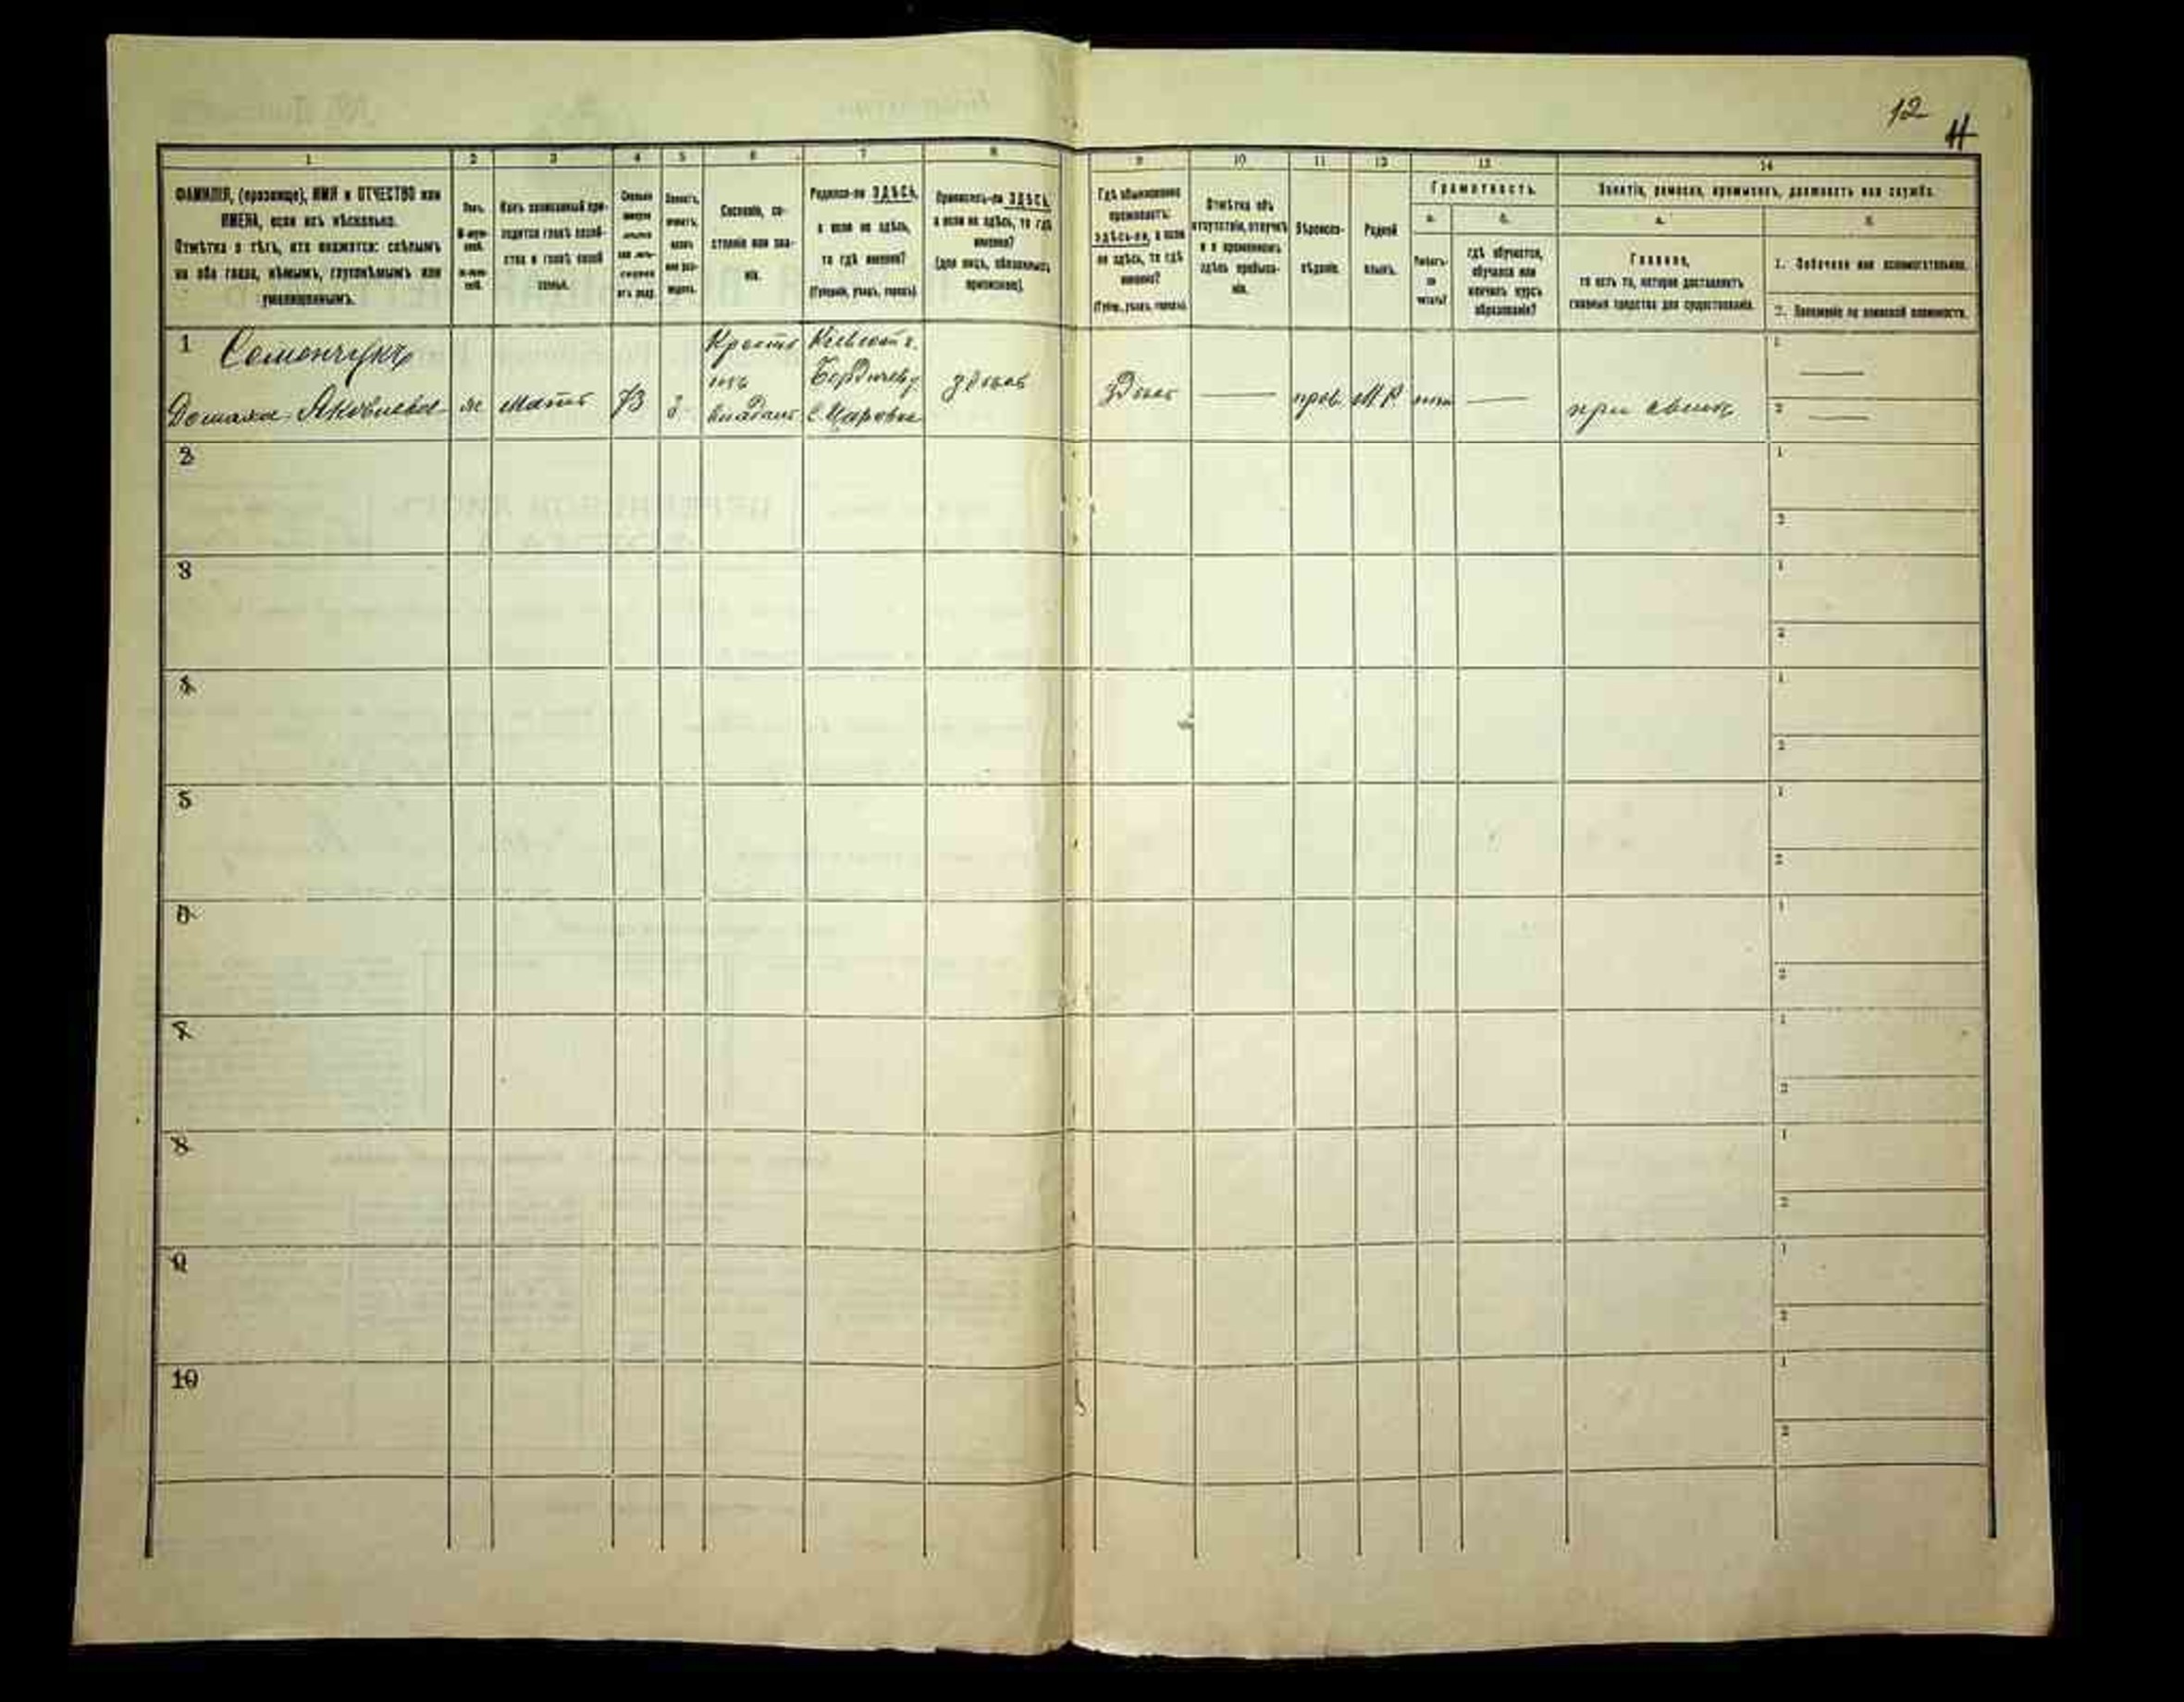 12
11
1 2 3 4 5 6 7 8 9 10 11 12 13 14
ФАМИЛІЯ, (прозвище), ИМЯ и ОТЧЕСТВО или
ИМЕНА, если ихъ нѣсколько.
Отмѣтка о тѣхъ, кто окажется: слѣпымъ
на оба глаза, нѣмымъ, глухонѣмымъ или
умалишеннымъ.
Полъ.
Какъ записанный при-
ходится главѣ хозяй-
ства и главѣ своей
семьи.
Сколько
отъ роду.
Холостъ,
женатъ,
вдовъ
или раз-
веденъ.
Сословіе, со-
стояніе или зва-
ніе.
Родился-ли ЗДѢСЬ,
а если не здѣсь,
то гдѣ именно?
(Губернія, уѣздъ, городъ).
Приписанъ-ли ЗДѢСЬ,
а если не здѣсь, то гдѣ
именно?
(для лицъ, обязанныхъ
припискою).
Гдѣ обыкновенно
проживаетъ:
здѣсь-ли, а если
не здѣсь, то гдѣ
именно?
(Губер., уѣздъ, городъ).
Отмѣтка объ
отсутствіи, отлучкѣ
и о временномъ
здѣсь пребыва-
ніи.
Вѣроиспо-
вѣданіе.
Родной
языкъ.
Грамотность.
а. б.
Умѣетъ-
ли
читать?
гдѣ обучается,
обучался или
кончилъ курсъ
образованія?
Занятіе, ремесло, промыселъ, должность или служба.
а. б.
Главное,
то есть то, которое доставляетъ
главныя средства для существованія.
1. Побочное или вспомогательное.
2. Положеніе по воинской повинности.
1 Семенчукъ
Домаха Яковлева
ж
мать
73
в
Крестьян
изъ
владѣл
Кіевской г.
Бердичев у
с. Маровка
здѣсь
здѣсь
—
прав
М Р
нѣт
—
при сынѣ
1 —
2 —
2
1
2
3
1
2
4
1
2
5
1
2
6
1
2
7
1
2
8
1
2
9
1
2
10
1
2